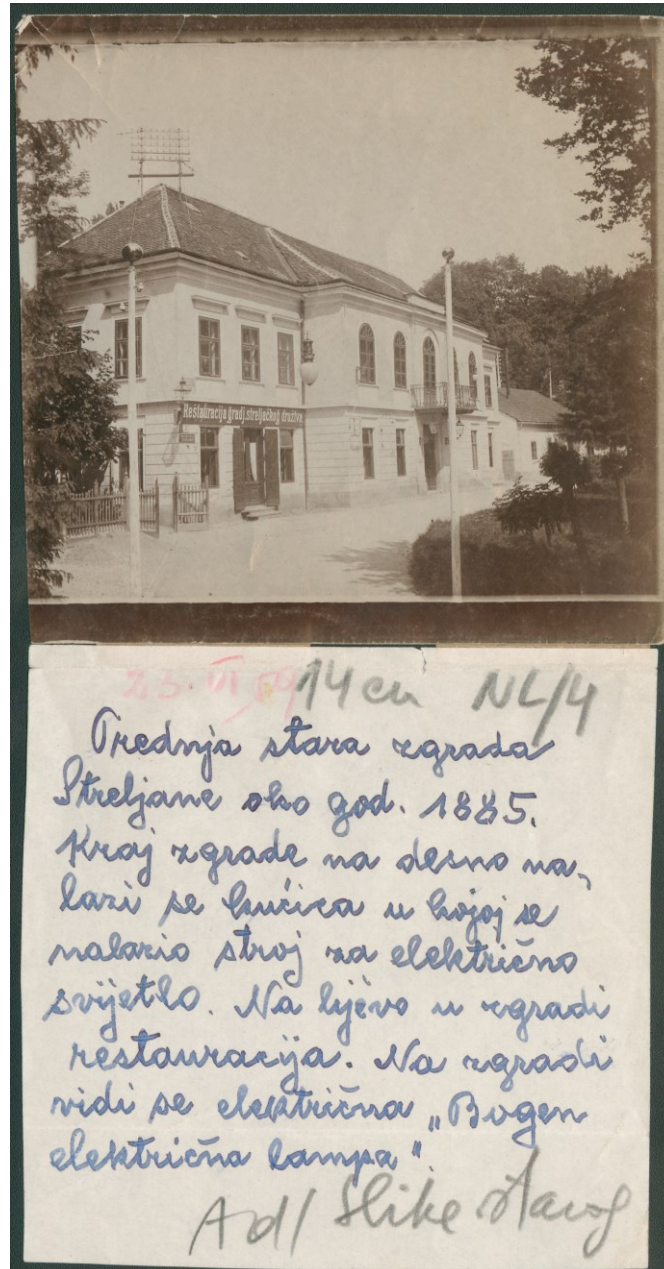 Restauracija gradj. streljačkog družtva
23. VI 59
14 cm NL/4
Prednja stara zgrada
Streljane oko god. 1885.
Kraj zgrade na desno na-
lazi se kućica u kojoj se
nalazio stroj za električno
svijetlo. Na lijevo u zgradi
restauracija. Na zgradi
vidi se električna „Bogen
električna lampa"
Ad/ Slike starog